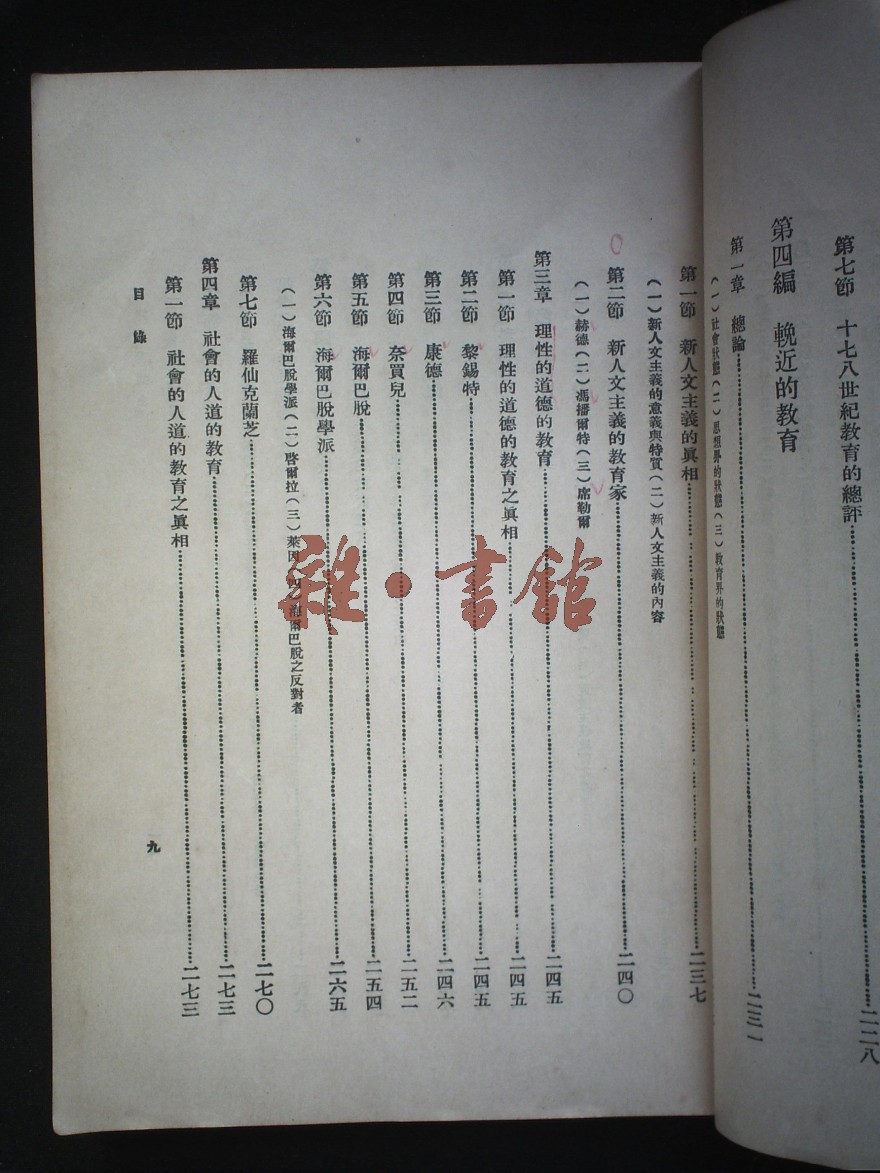 第七節 十七八世紀教育的總評……二二八
第四編 輓近的教育
第一章 總論……二三一
(一)社會狀態(二)思想界的狀態(三)教育界的狀態
第一節 新人文主義的眞相……二三七
(一)新人文主義的意義與特質(二)新人文主義的內容
第二節 新人文主義的教育家……二四〇
(一)赫德(二)馮播爾特(三)席勒爾
第三章 理性的道德的教育……二四五
第一節 理性的道德的教育之眞相……二四五
第二節 黎錫特……二四五
第三節 康德……二四六
第四節 奈買兒……二五二
第五節 海爾巴脫……二五四
第六節 海爾巴脫學派……二六五
(一)海爾巴脫學派(二)啓爾拉(三)萊因(四)海爾巴脫之反對者
第七節 羅仙克蘭芝……二七〇
第四章 社會的人道的教育……二七三
第一節 社會的人道的教育之眞相……二七三
目錄
九
雜·書館